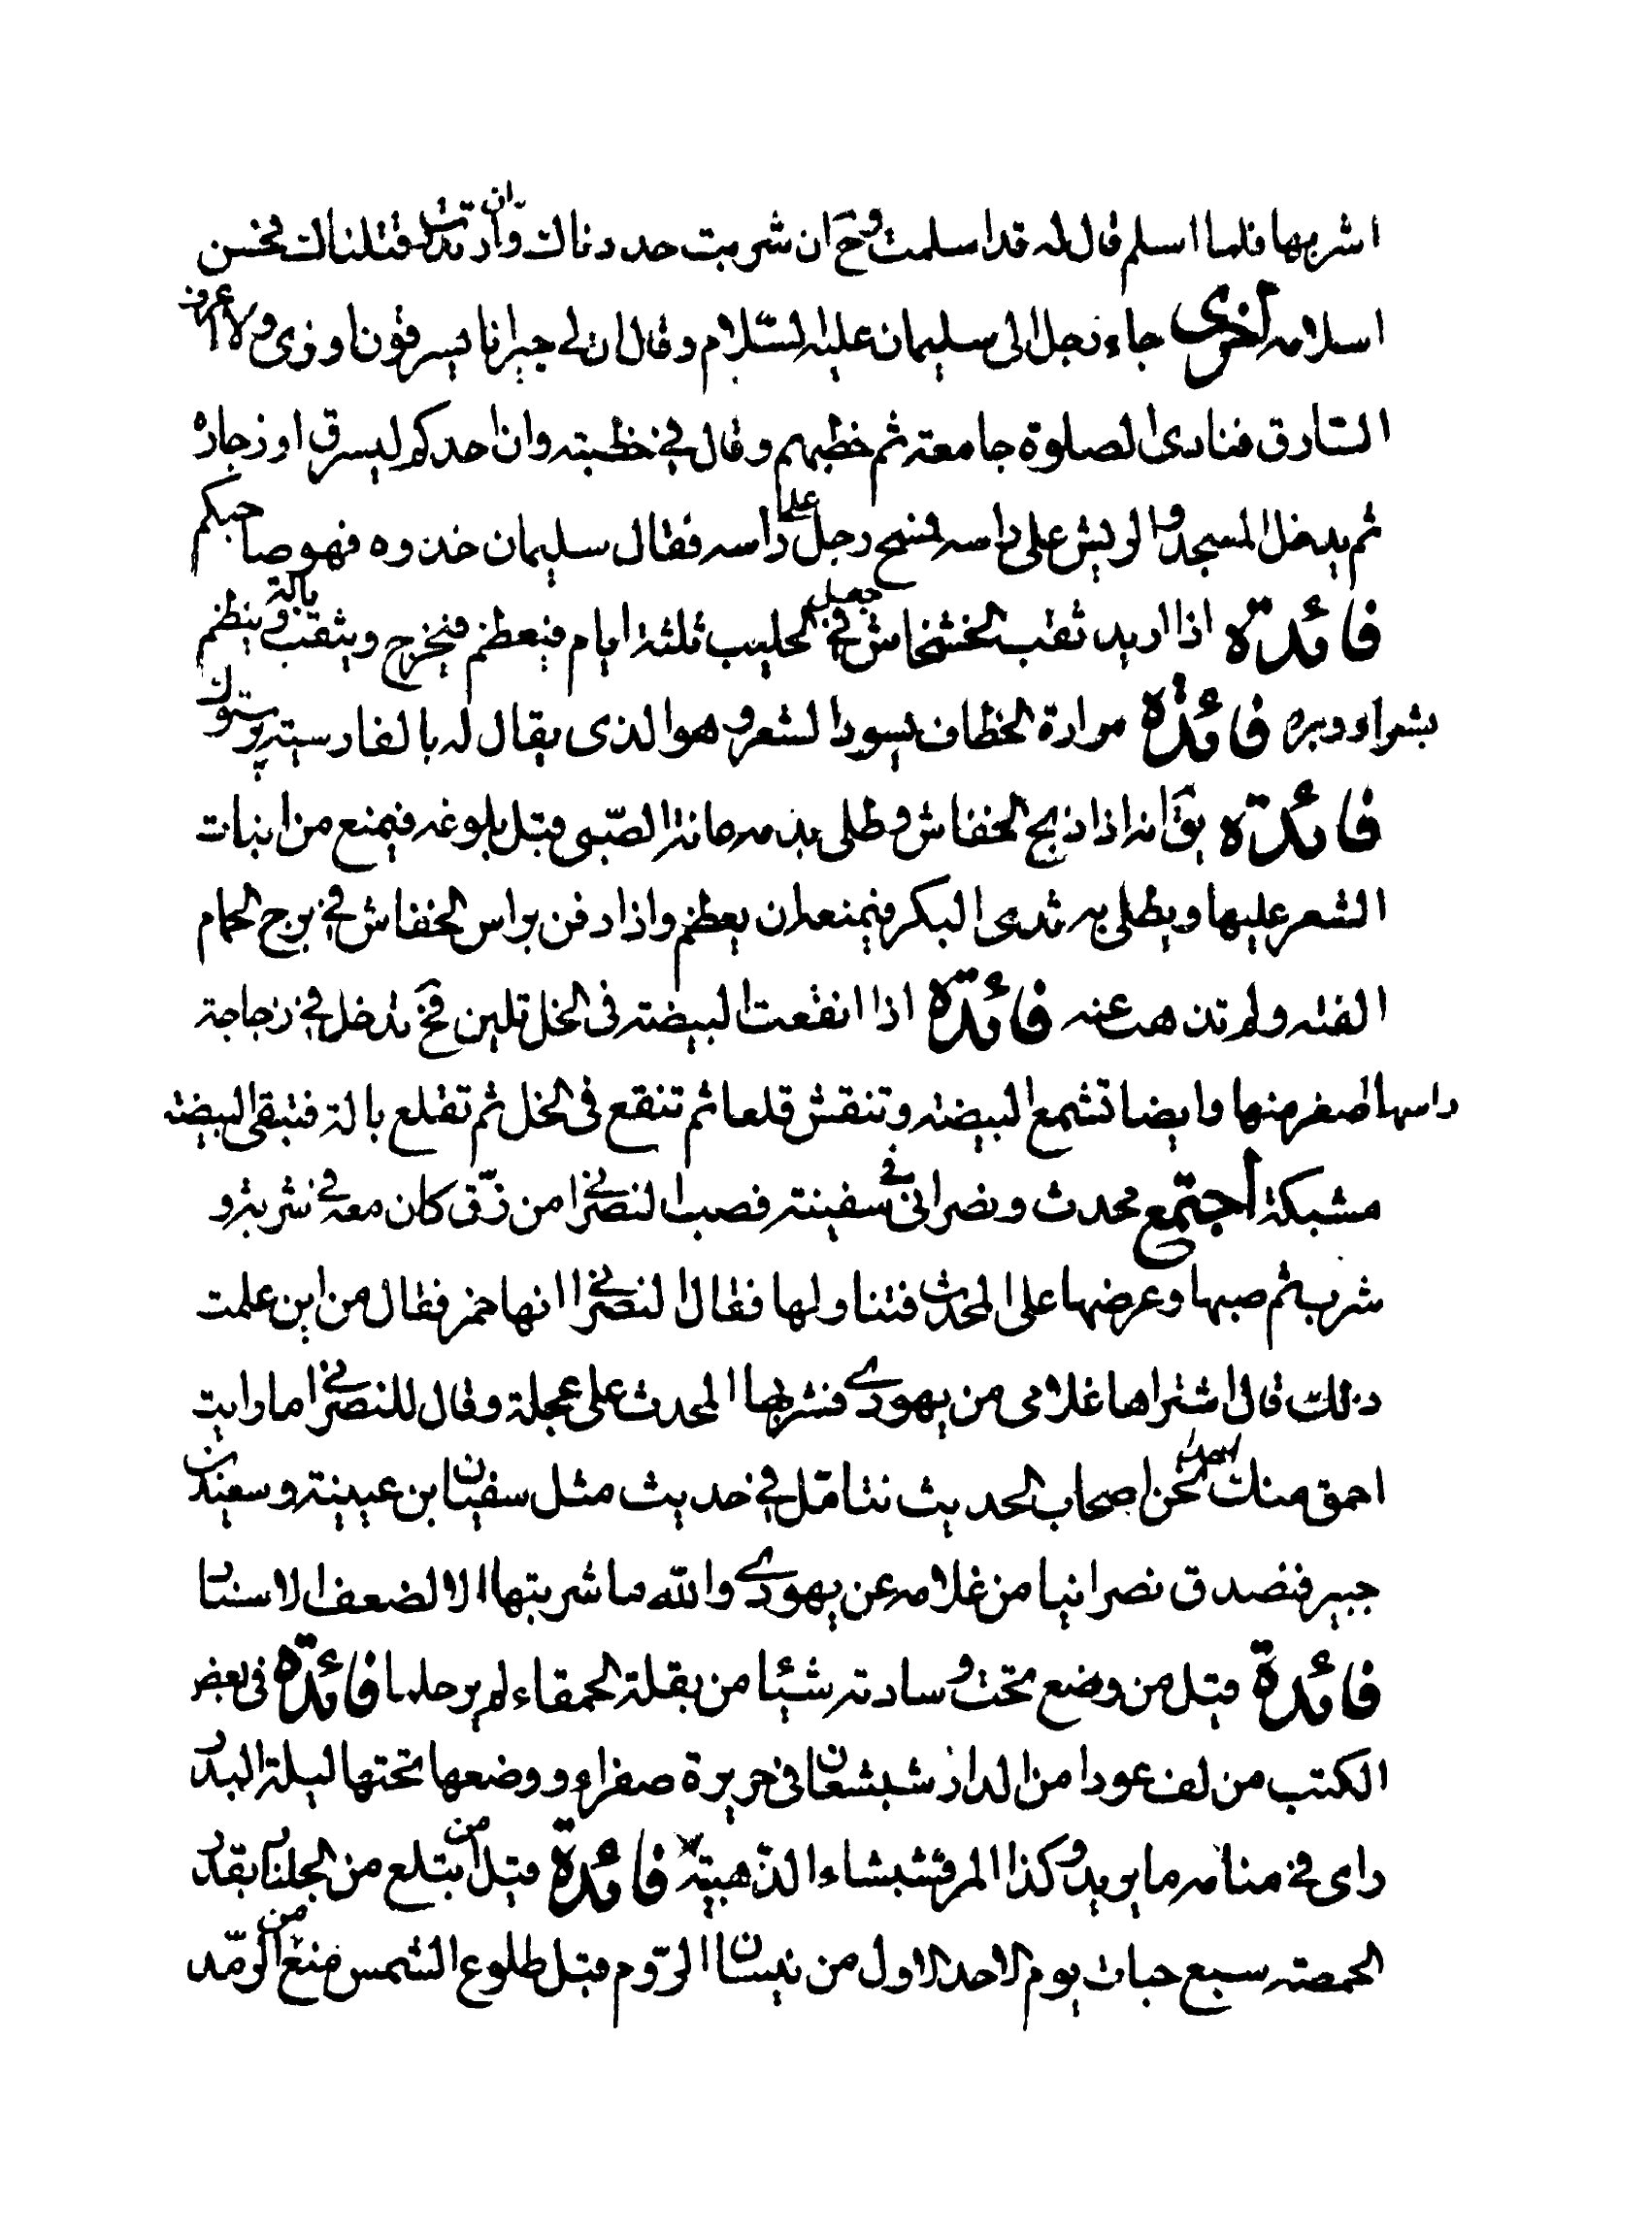 اشربها فلما اسلم قال له قد اسلمت وح ان شربت حددناك وان ارتددت قتلناك فحسن
اسلامه اخرى جاء رجل الى سليمان عليه السّلام وقال ان لي جيرانا يسرقون اوزى ولا اعرف
السّارق فنادى الصلوة جامعة ثم خطبهم وقال في خطبته وان احدكم ليسرق اوز جاره
ثم يدخل المسجد والريش على راسه فمسح رجل على راسه فقال سليمان خذوه فهو صاحبكم
فائدة اذا اريد ثقب الخشخاش جعل في الحليب ثلثة ايام فيعظم فيخرج ويثقب بالة وينظم
بشراء وبره فائدة مرارة الخطاف يسود الشعر وهو الذى يقال له بالفارسية پرستوك
فائدة يقَ انه اذا ذبح الخفاش وطلى بدمه عانة الصّبى قبل بلوغه فيمنع من انبات
الشعر عليها ويطلى به ثدى البكر فيمنعه ان يعظم واذا دفن براس الخفاش في برج الحمام
الفته ولم تذهب عنه فائدة اذا انقعت البيضة فى الخل تلين فح تدخل في زجاجة
راسها اصغر منها وايضا تشمع البيضة وتنقش قلعا ثم تنقع فى الخل ثم تقلع بالة فتبقى البيضة
مشبكة اجتمع محدث ونصرانى في سفينة فصب النصرانى من زقّ كان معه في شربة و
شرب ثم صبها وعرضها على المحدث فتناولها فقال النصرانى انها خمر فقال من اين علمت
ذلك قال اشتراها غلامى من يهودى فشربها المحدث على عجلة وقال للنصرانى ما رايت
احمق منك نحن اصحاب الحديث نتامّل في حديث مثل سفيان بن عيينة وسعيد بن
جبير فنصدق نصرانيا من غلامه عن يهودى والله ما شربتها الا لضعف الاسناد
فائدة قيل من وضع تحت وسادته شيئا من بقلة الحمقاء لم ير حلما فائدة فى بعض
الكتب من لف عودا من الدار شيشعان فى حريرة صفراء ووضعها تحتها ليلة البدر
راى في منامه ما يريد وكذا المرقشيشاء الذهبية فائدة قيل من ابتلع من الجلنار بقدر
الحمصة سبع حبات يوم الاحد الاول من نيسان الرّوم قبل طلوع الشمس منع من الرّمد